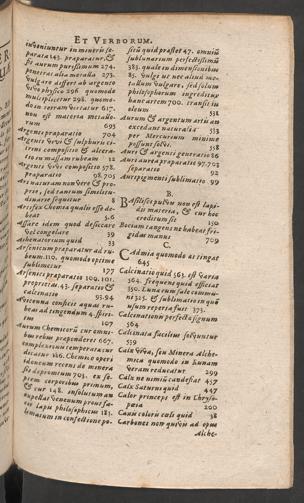 ET VERBORUM.
inveniuntur in minerâ se-
parata 143. præparatur, &
fit aurum purissimum 274.
penetrat alia metalla 273.
Vulgare differt ab argento
Vivo physico 296. quomodo
multiplicetur 298. quomo-
do in terram vertatur 617.
non est materia metallo-
rum 693
Argenti præparatio 704
Argenti Vivi & sulphuris ci-
trini compositio & altera-
tio in massam rubeam 12
Argenti Vivi compositio 578.
præparatio 98.705
Ars naturam non vere & pro-
prie, sed tantum similitu-
dinarie sequitur 8
Artifex Chemica qualis esse de-
beat 5.6
Assare idem quod desiccare
vel congelare 39
Athenatorium quid 33
Arsenicum præparatur ad ru-
beum. 110. quomodo optime
sublimetur 177
Arsenici præparatio 100. 101.
proprietas. 43. separatio &
calcinatio 93.94
Avicenna confecit aquas ru-
beas ad tingendum 4. spiri-
tus 107
Aurum Chemicorum cur omni-
bus rebus præponderet 667.
complexionis temperatæ cur
dicatur 186. Chemico operi
idoneum recens de minera
sit depromtum 703. ex se-
prem corporibus primum,
& cur 148. insolutum an
expellat Venenum prout fa-
cit lapis philosophicus 183.
limatum in confectione po-
situm quid præstet 47. omniũ
sublunarium perfectissimũ
385. quale in dimensionibus
85. Vulgi ut nec aliud me-
tallum Vulgare, sed solum
philosophorum ingreditur
hanc artem 700. transit in
oleum 551
Aurum & argentum artis an
excedant naturalia 553
per Mercurium minime
possunt solvi. 558
Auri & argenti generatio 86
Auri aurea præparatio 97.702
separatio 92
Auripigmenti sublimatio 99
B.
Basilisce pulvis non est lapi-
dis materia, & cur hoc
creditum sit 150
Bociam tangens ne habeat fri-
gidas manus 709
C.
Cadmia quomodo æs tingat
645
Calcinatio quid 563. est Varia
364. frequens quid efficiat
350. Luna eum sale commu-
ni 325. & sublimatio in quẽ
usum reperta fuit 373.
Calcinationis perfecta signum
364
Calcinata facilius solvuntur
359
Calx Viva, seu Minera Alche-
mica quomodo in Lunam
veram reducatur 299
Calx ne nimiũ candefiat 457
Calx Saturni quid 447
Calor princeps est in Chryso-
pœia 200
Canis coloris cæli quid 38
Carbones non quivis ad opus
Alche-